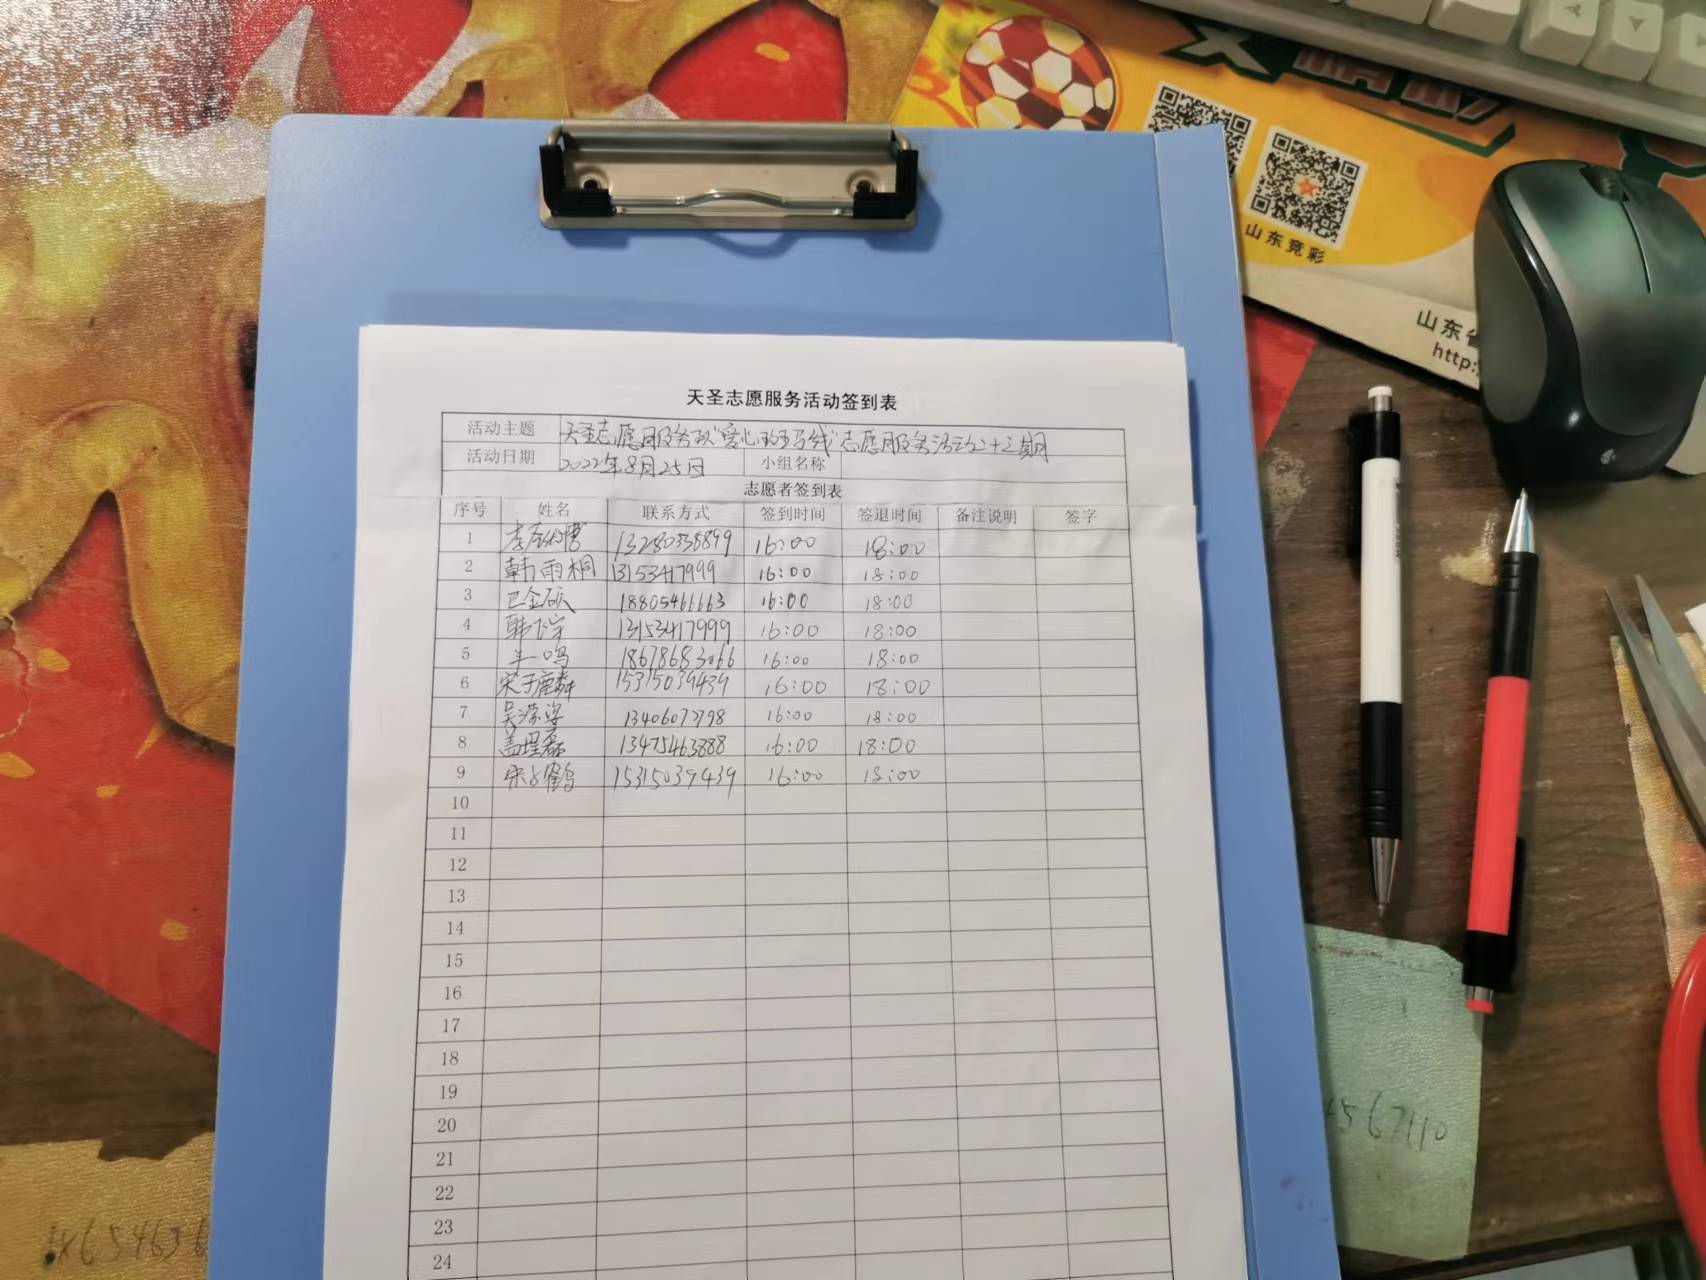 山东竞彩
山东省
http:
天圣志愿服务活动签到表
活动主题 天圣志愿服务队"爱心斑马线"志愿服务活动二十三期
活动日期 2022年8月25日 小组名称
志愿者签到表
序号 姓名 联系方式 签到时间 签退时间 备注说明 签字
1 13280538899 16:00 18:00
2 韩雨桐 13153417999 16:00 18:00
3 18805466663 16:00 18:00
4 13153417999 16:00 18:00
5 18678683066 16:00 18:00
6 宋子麟 15315039439 16:00 18:00
7 16:00 18:00
8 13475463888 16:00 18:00
9 宋子鹤 15315039439 16:00 18:00
10
11
12
13
14
15
16
17
18
19
20
21
22
23
24